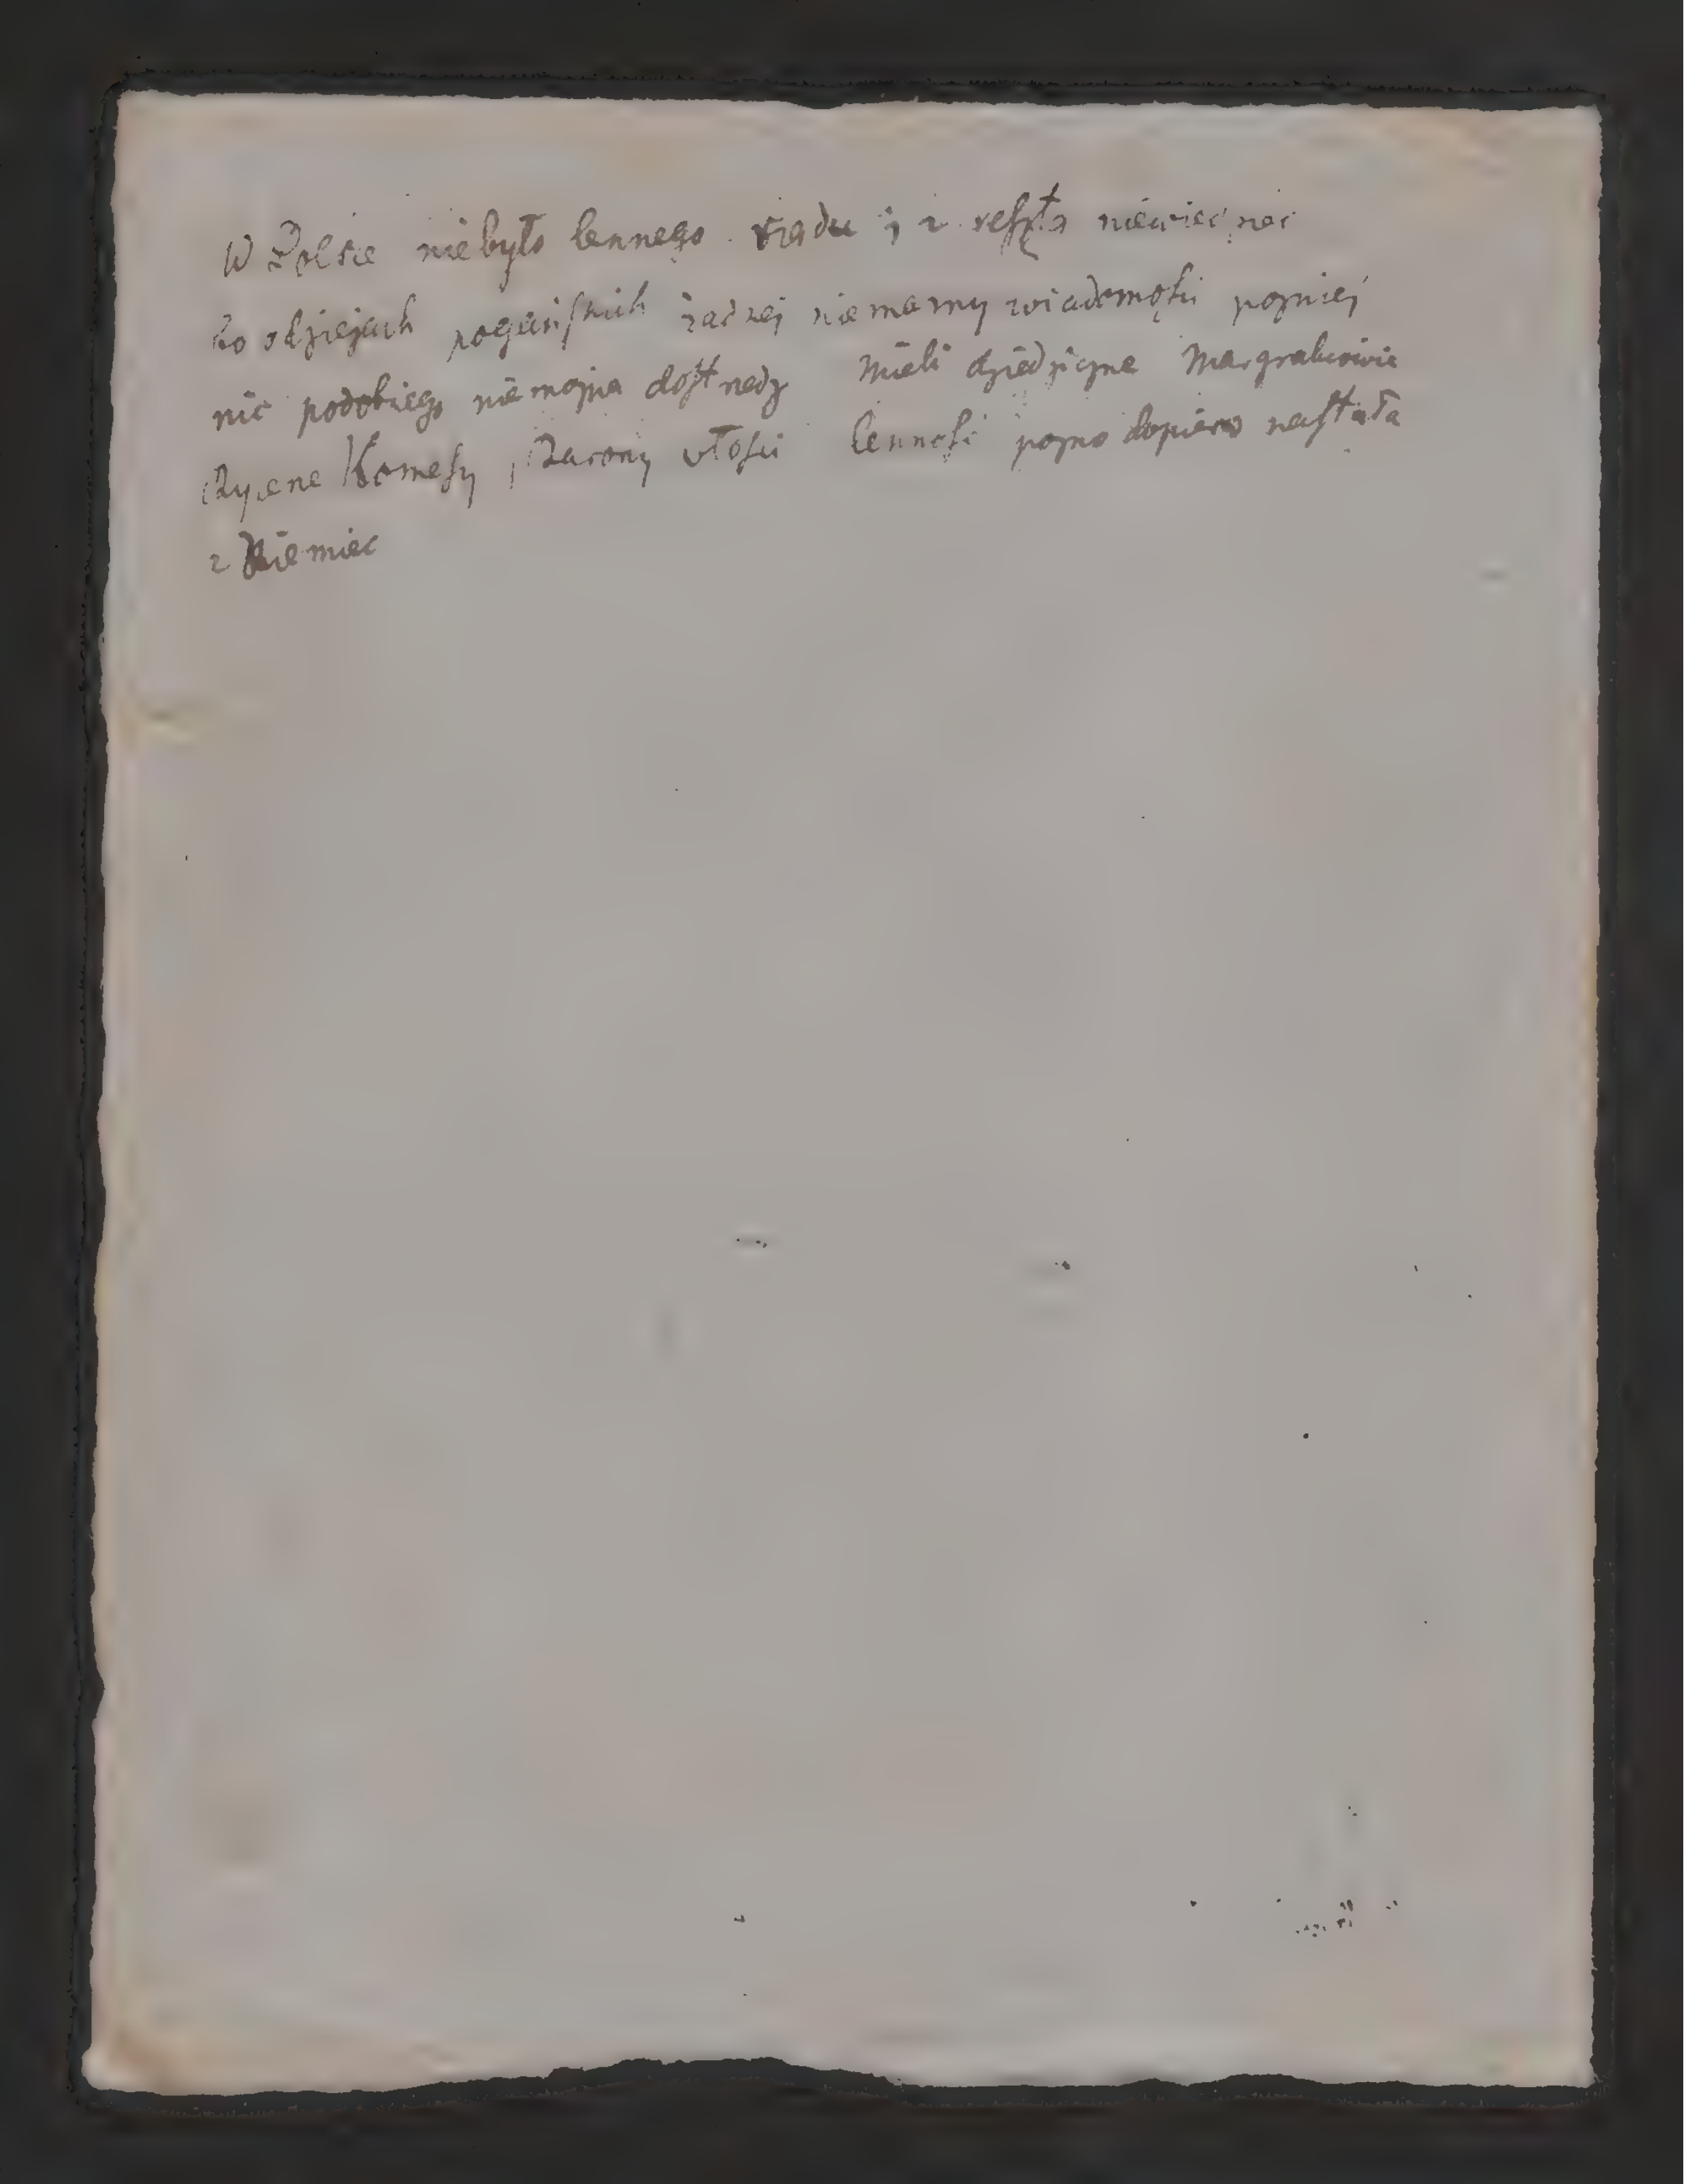 W Polsce niebyło lennego rządu i z reszta niewięcznec
bo odziejach pogańskich żadnej niemamy wiadomości pozniej
nic podobnego niemozna dostredz Mieli dziedziczne Margrabiowie
Zupene Komesy, Barony włości lenność pozno dopiero nastała
z Niemiec